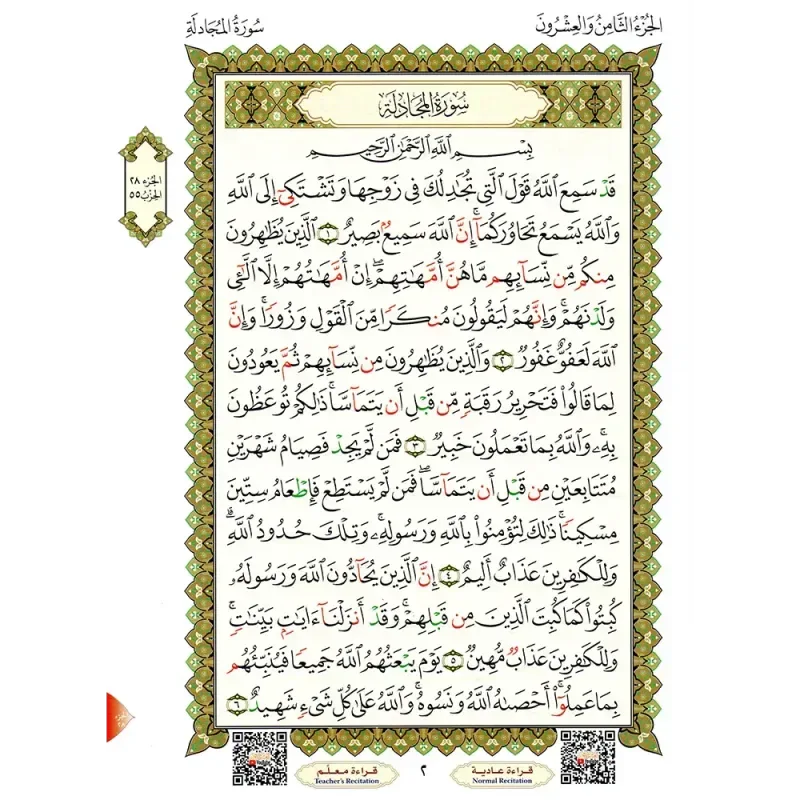 الجزء الثامن والعشرون
سورة المجادلة
سُورَةُ المُجَادلَة
بِسْمِ ٱللَّهِ ٱلرَّحْمَٰنِ ٱلرَّحِيمِ
الجزء ٢٨
الحزب ٥٥
قَدْ سَمِعَ ٱللَّهُ قَوْلَ ٱلَّتِي تُجَٰدِلُكَ فِي زَوْجِهَا وَتَشْتَكِيٓ إِلَى ٱللَّهِ
وَٱللَّهُ يَسْمَعُ تَحَاوُرَكُمَآ ۚ إِنَّ ٱللَّهَ سَمِيعٌۢ بَصِيرٌ ١ ٱلَّذِينَ يُظَٰهِرُونَ
مِنكُم مِّن نِّسَآئِهِم مَّا هُنَّ أُمَّهَٰتِهِمْ ۖ إِنْ أُمَّهَٰتُهُمْ إِلَّا ٱلَّٰٓـِٔي
وَلَدْنَهُمْ ۚ وَإِنَّهُمْ لَيَقُولُونَ مُنكَرًا مِّنَ ٱلْقَوْلِ وَزُورًا ۚ وَإِنَّ
ٱللَّهَ لَعَفُوٌّ غَفُورٌ ٢ وَٱلَّذِينَ يُظَٰهِرُونَ مِن نِّسَآئِهِمْ ثُمَّ يَعُودُونَ
لِمَا قَالُوا۟ فَتَحْرِيرُ رَقَبَةٍ مِّن قَبْلِ أَن يَتَمَآسَّا ۚ ذَٰلِكُمْ تُوعَظُونَ
بِهِۦ ۚ وَٱللَّهُ بِمَا تَعْمَلُونَ خَبِيرٌ ٣ فَمَن لَّمْ يَجِدْ فَصِيَامُ شَهْرَيْنِ
مُتَتَابِعَيْنِ مِن قَبْلِ أَن يَتَمَآسَّا ۖ فَمَن لَّمْ يَسْتَطِعْ فَإِطْعَامُ سِتِّينَ
مِسْكِينًا ۚ ذَٰلِكَ لِتُؤْمِنُوا۟ بِٱللَّهِ وَرَسُولِهِۦ ۚ وَتِلْكَ حُدُودُ ٱللَّهِ ۗ
وَلِلْكَٰفِرِينَ عَذَابٌ أَلِيمٌ ٤ إِنَّ ٱلَّذِينَ يُحَآدُّونَ ٱللَّهَ وَرَسُولَهُۥ
كُبِتُوا۟ كَمَا كُبِتَ ٱلَّذِينَ مِن قَبْلِهِمْ ۚ وَقَدْ أَنزَلْنَآ ءَايَٰتٍۭ بَيِّنَٰتٍ ۚ
وَلِلْكَٰفِرِينَ عَذَابٌ مُّهِينٌ ٥ يَوْمَ يَبْعَثُهُمُ ٱللَّهُ جَمِيعًا فَيُنَبِّئُهُم
بِمَا عَمِلُوٓا۟ ۚ أَحْصَىٰهُ ٱللَّهُ وَنَسُوهُ ۚ وَٱللَّهُ عَلَىٰ كُلِّ شَىْءٍ شَهِيدٌ ٦
قراءة عادية
Normal Recitation
٢
قراءة معلّم
Teacher's Recitation